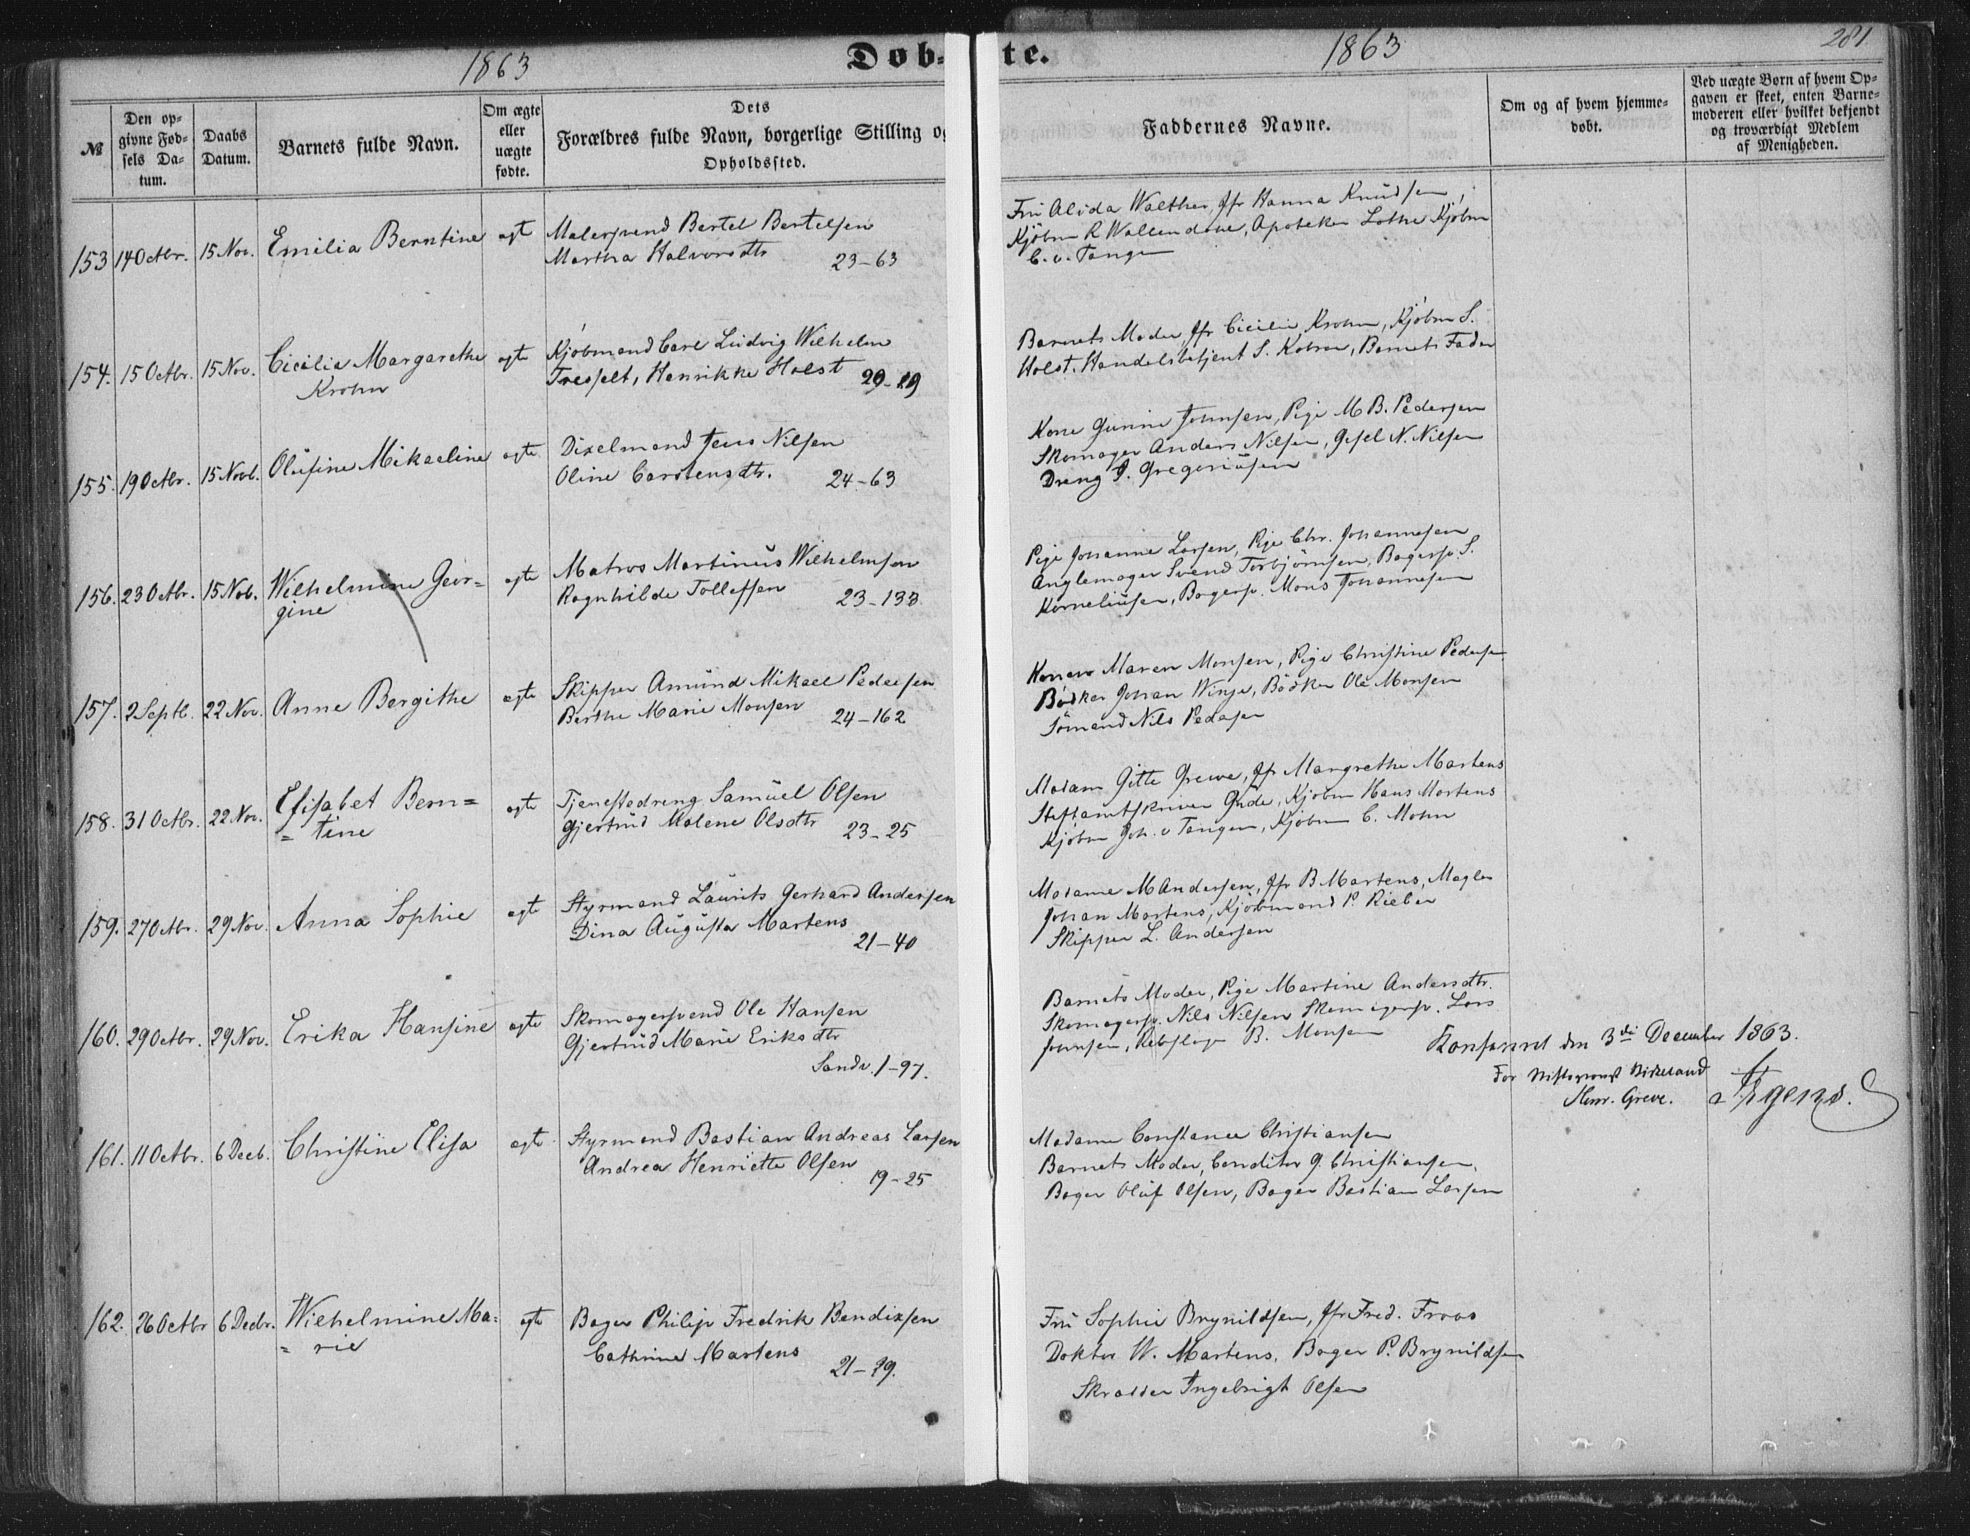 1863
Døb-
te.
1863
281
№
Den op-
givne Fød-
sels Da-
tum.
Daabs
Datum.
Barnets fulde Navn.
Om ægte
eller
uægte
fødte.
Dets
Forældres fulde Navn, borgerlige Stilling og
Opholdssted.
Faddernes Navne.
Om og af hvem hjemme-
døbt.
Ved uægte Børn af hvem Op-
gaven er skeet, enten Barne-
moderen eller hvilket bekjendt
og troværdigt Medlem
af Menigheden.
153 14 Octbr. 15 Nov. Emilia Berntine ægt Malersvend Bertel Bertelsen
Martha Halvorsdtr 23-63
Fru Alida Walther, Jfr Hanna Knudsen,
Kjøbm R Wallendahl, Apotheker Lothe, Kjøbm
C. v. Tangen
154. 15 Octbr. 15 Nov. Cicilia Margarethe ægte Kjøbmand Carl Ludvig Wilhelm
Krohn Tresselt, Henrikke Holst
Barnets Moder, Jfr Cicilie Krohn, Kjøbm S.
Holst, Handelsbetjent S. Barnets Fader
155. 19 Octbr. 15 Novb. Olufine Mikaeline ægte Dixelmand Jens Nilsen
Oline Carstensdtr. 24-63
Kone Gurine Johnsen, Pige M B. Pedersen
Skomager Anders Nilsen, Gesel N. Nilsen
Dreng S. Gregoriusen
156. 23 Octbr. 15 Nob. Wilhelmine Geor=
gine ægte Matros Martinus Wilhelmsen
Ragnhilde Tollefsen 23-133
Pige Johanne Larsen, Pige Chr. Johannesen
Anglemager Svend Torbjørnsen, Bagersv. S.
Korneliusen, Bagersv. Mons Johannesen
157. 2 Septb. 22 Nov. Anne Bergithe ægte Skipper Amund Mikael Pedersen
Berthe Marie Monsen 24-162
Konen Maren Monsen, Pige Christine Pedersen
Bødker Johan Winge, Bødker Ole Monsen
Sømand Nils Pedersen
158. 31 Octbr. 22 Nov. Elisabet Bern=
= tine ægte Tjenestedreng Samuel Olsen
Gjertrud Malene Olsdtr 23-25
Madam Gitte Greve, Jfr Margrethe Martens
Stiftamtskriver Gude, Kjøbm Hans Mortens
Kjøbm Joh. v Tangen, Kjøbm C. Mohn
159. 27 Octbr. 29 Nov. Anna Sophie ægte Styrmand Laurits Gerhard Andersen
Dina Augusta Martens
21-40
Madame M Andersen, Jfr B Martens, Mægler
Johan Martens, Kjøbmand P. Rieber
Skipper L. Andersen
160. 29 Octbr. 29 Nov. Erika Hansine ægte Skomagersvend Ole Hansen
Gjertrud Marie Eriksdtr
Sandv. 1-97.
Barnets Moder, Pige Martine Andersdtr.
Skomagersv. Nils Nilsen Skomagersv. Lars
Johnsen, Rebslager B. Monsen
Konferert den 3die December 1863.
For Birkeland
Henr. Greve. Irgens.
161. 11 Octbr. 6 Decb. Christine Elisa ægte Styrmand Bastian Andreas Larsen
Andrea Henriette Olsen
19-25
Madame Constance Christiansen
Barnets Moder, Conditor G. Christiansen,
Bager Oluf Olsen, Bager Bastian Larsen
162. 26 Octbr 6 Decbr. Wilhelmine Ma=
= rie ægte Bager Philip Fredrik Bendixsen
Cathrine Martens
Fru Sophie Brynildsen, Jfr Fred. Froos
Doktor W. Martens, Bager P. Brynildsen
Skrædder Ingebrigt Olsen